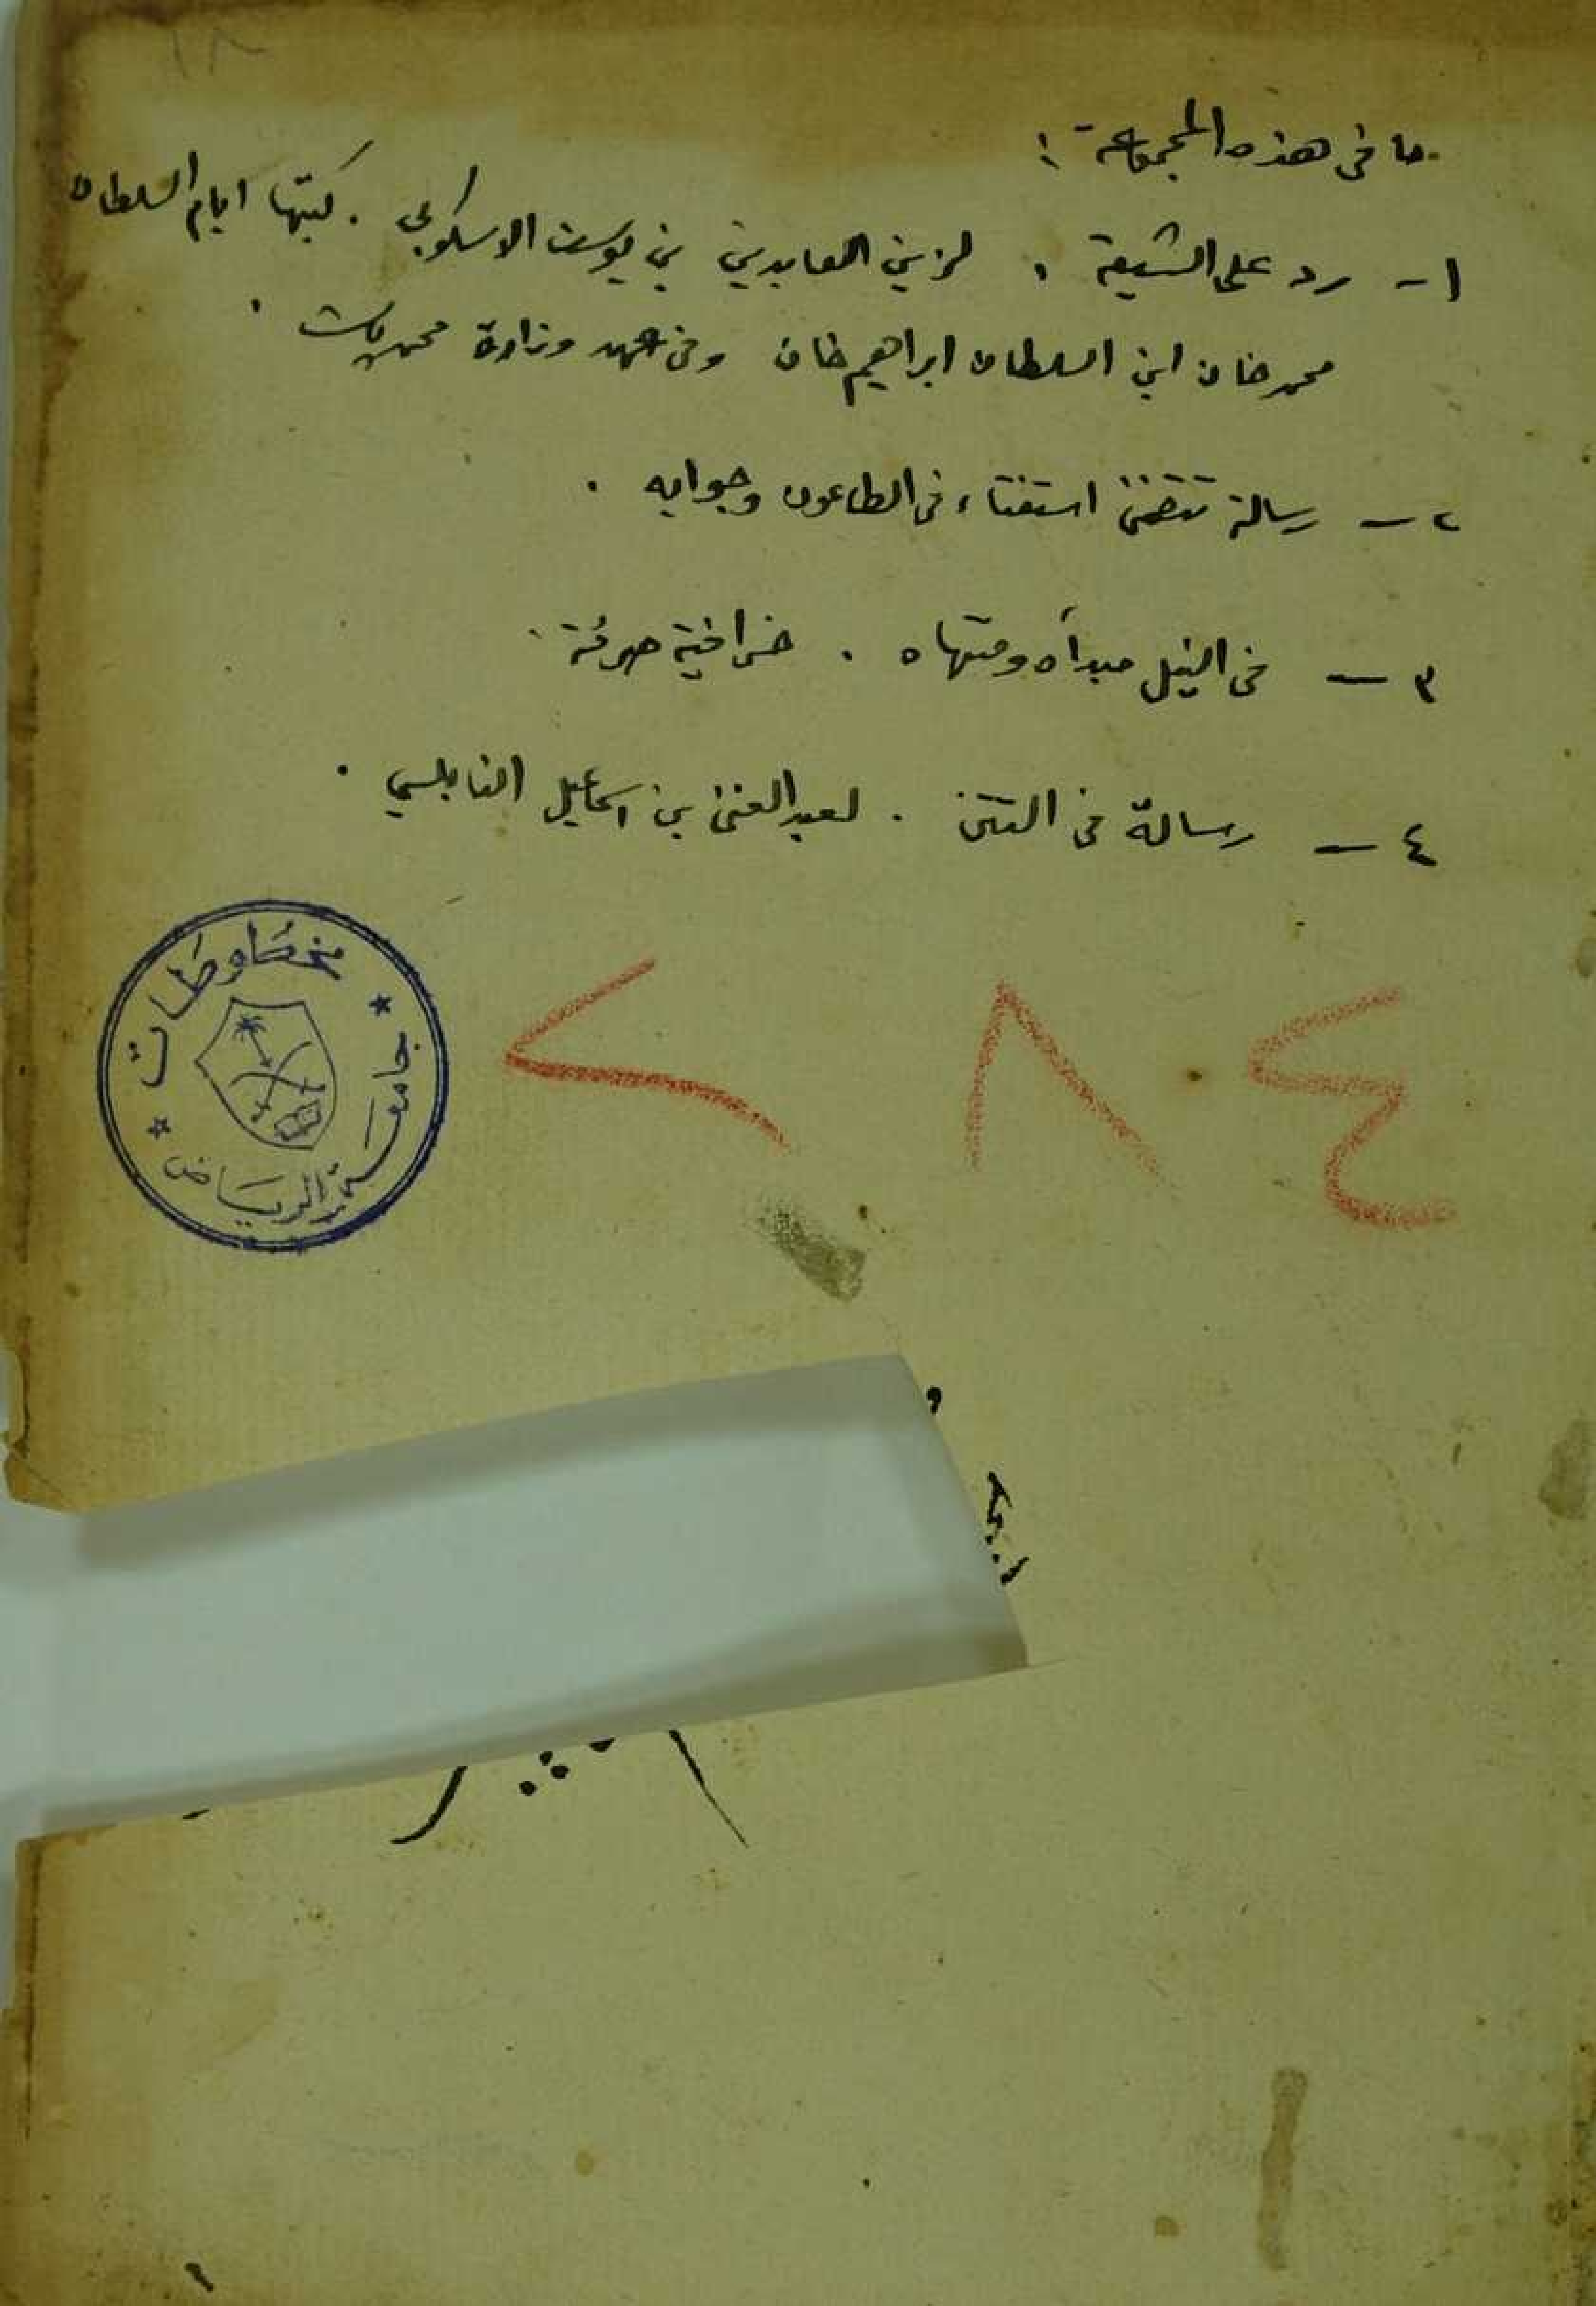 ما فى هذه المجموعة :
١ - رد على الشيعة . لزين العابدين بن يوسف الاسكوبى . كتبها ايام السلطان
محمد خان ابن السلطان ابراهيم خان وفى عهد وزارة محمد باشا .
٢ - رسالة تتضمن استفتاء فى الطاعون وجوابه .
٣ - فى النيل مبدأه ومنتهاه . خرافية صرفة .
٤ - رسالة فى التتن . لعبد الغنى بن اسماعيل النابلسي .
مخطوطات
جامعة الرياض
٤ ٨
١